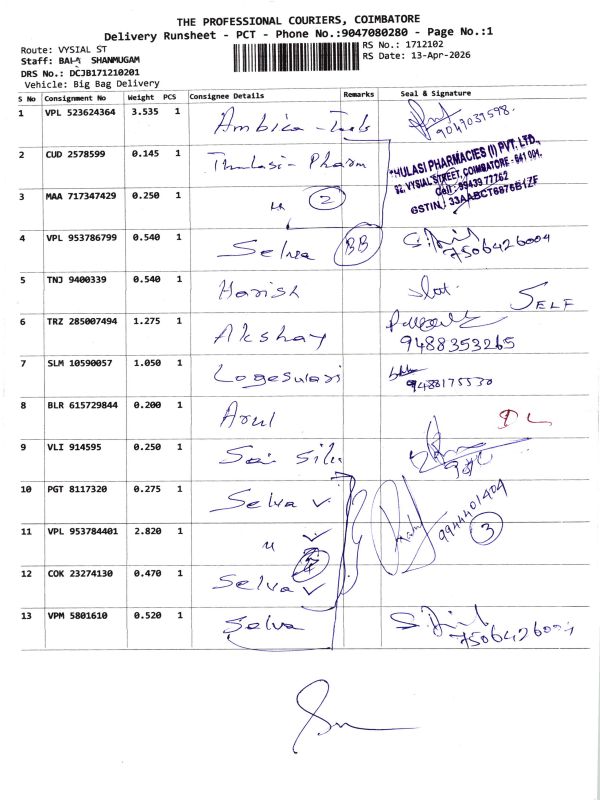 THE PROFESSIONAL COURIERS, COIMBATORE
Delivery Runsheet - PCT - Phone No.:9047080280 - Page No.:1
Route: VYSIAL ST
RS No.: 1712102
Staff: BALA SHANMUGAM
RS Date: 13-Apr-2026
DRS No.: DCJB171210201
Vehicle: Big Bag Delivery
S No Consignment No Weight PCS Consignee Details Remarks Seal & Signature
1 VPL 523624364 3.535 1 Ambica 9047037598.
2 CUD 2578599 0.145 1 Thulasi - Pharm
THULASI PHARMACIES (I) PVT. LTD.,
92, VYSIAL STREET, COIMBATORE - 641 001.
Cell : 99439 77762
GSTIN : 33AABCT6876B1ZF
3 MAA 717347429 0.250 1 " 2
4 VPL 953786799 0.540 1 Selva BB 7506426004
5 TNJ 9400339 0.540 1 Harish SELF
6 TRZ 285007494 1.275 1 Akshay 9488353265
7 SLM 10590057 1.050 1 Logeswari 9488175530
8 BLR 615729844 0.200 1 Arul
9 VLI 914595 0.250 1 Sai
10 PGT 8117320 0.275 1 Selva 9944401404
11 VPL 953784401 2.820 1 " 3
12 COK 23274130 0.470 1 Selva
13 VPM 5801610 0.520 1 Selva 7506426004